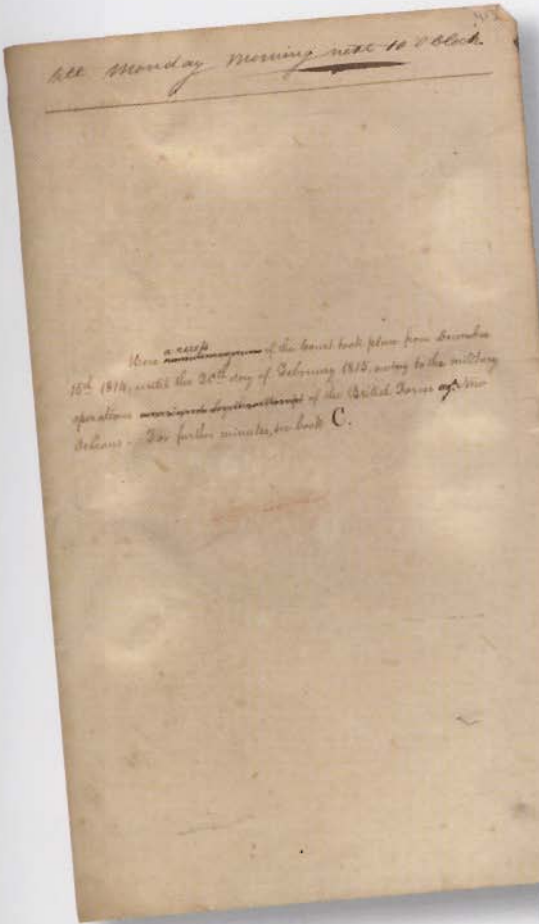 till Monday Morning next 10 O'Clock.
Here a recess of the Court took place from December
15th 1814, until the 20th day of February 1815, owing to the military
operations of the British Forces agst New
Orleans. For further minutes, see book C.